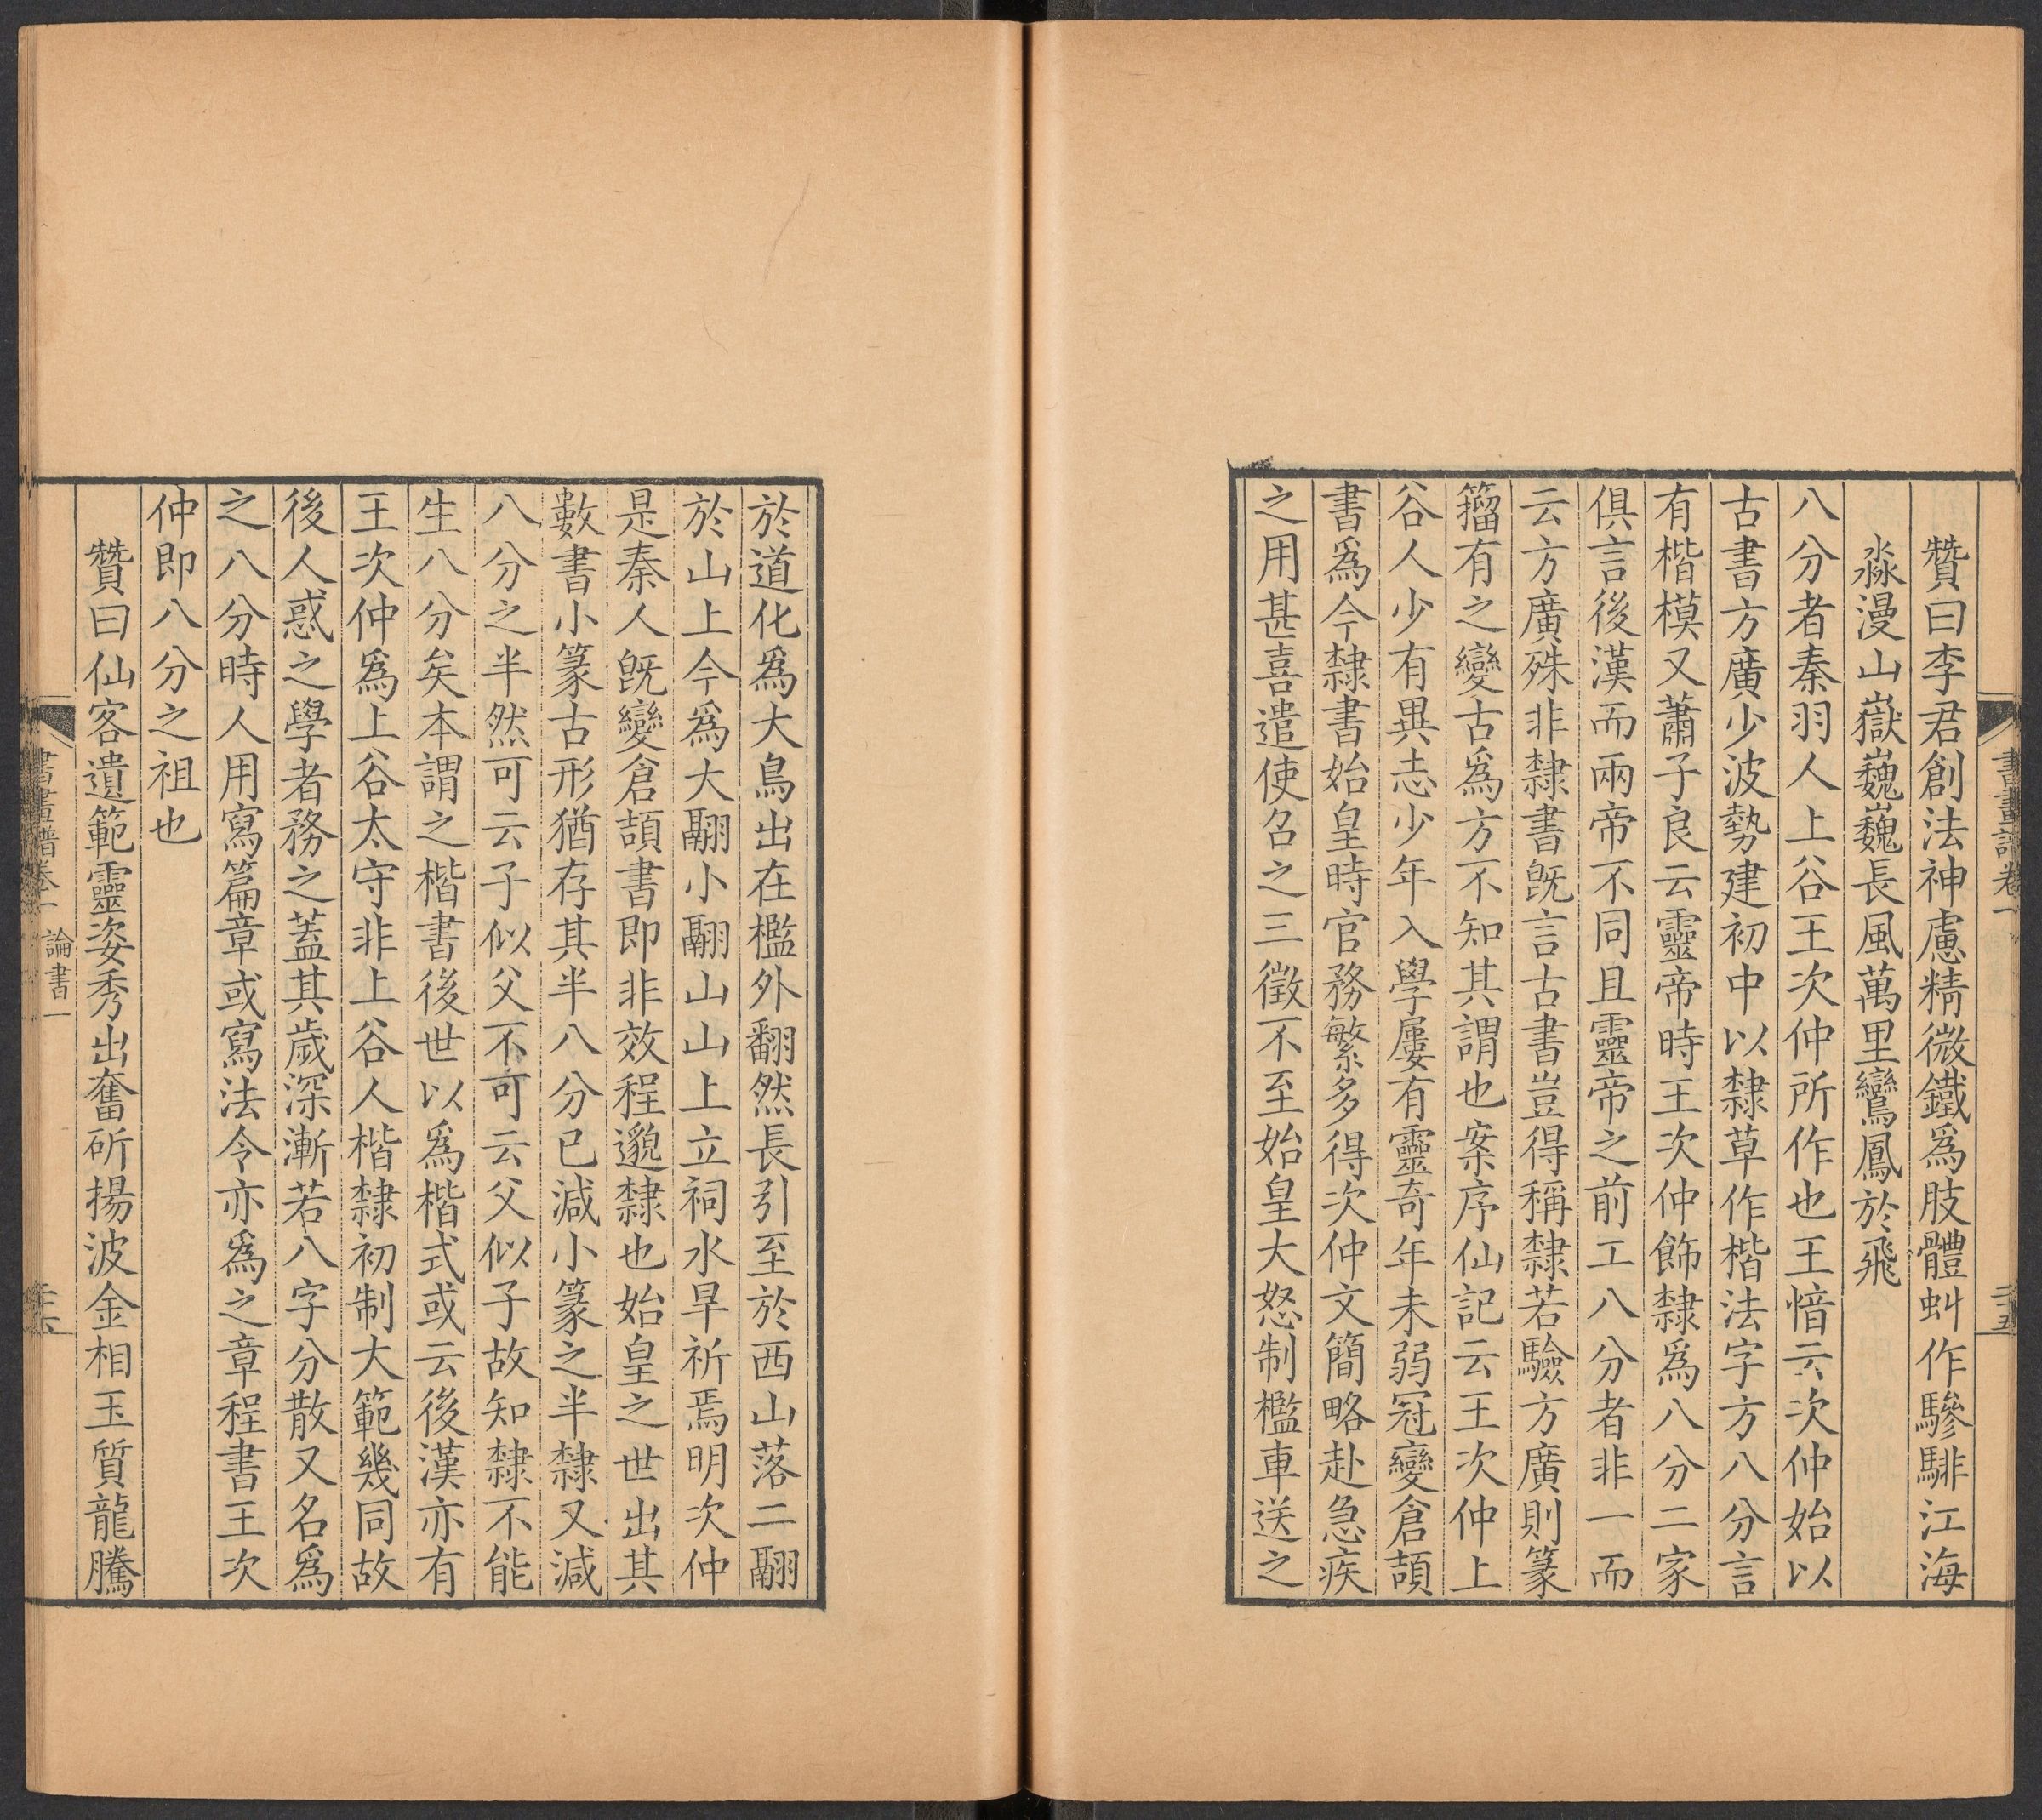 書畫譜卷一
二十五
贊曰李君創法神慮精微鐵爲肢體虯作驂騑江海
淼漫山嶽巍巍長風萬里鸞鳳於飛
八分者秦羽人上谷王次仲所作也王愔云次仲始以
古書方廣少波勢建初中以隸草作楷法字方八分言
有楷模又蕭子良云靈帝時王次仲飾隸爲八分二家
俱言後漢而兩帝不同且靈帝之前工八分者非一而
云方廣殊非隸書旣言古書豈得稱隸若驗方廣則篆
籀有之變古爲方不知其謂也案序仙記云王次仲上
谷人少有異志少年入學屢有靈奇年未弱冠變倉頡
書爲今隸書始皇時官務繁多得次仲文簡略赴急疾
之用甚喜遣使召之三徵不至始皇大怒制檻車送之
於道化爲大鳥出在檻外翻然長引至於西山落二翮
於山上今爲大翮小翮山山上立祠水旱祈焉明次仲
是秦人旣變倉頡書即非效程邈隸也始皇之世出其
數書小篆古形猶存其半八分已減小篆之半隸又減
八分之半然可云子似父不可云父似子故知隸不能
生八分矣本謂之楷書後世以爲楷式或云後漢亦有
王次仲爲上谷太守非上谷人楷隸初制大範幾同故
後人惑之學者務之蓋其歲深漸若八字分散又名爲
之八分時人用寫篇章或寫法令亦爲之章程書王次
仲即八分之祖也
贊曰仙客遺範靈姿秀出奮斫揚波金相玉質龍騰
書畫譜卷一
論書一
二十六